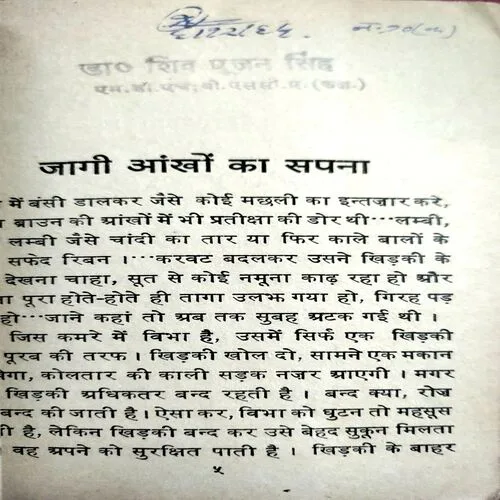 डा० शिव पूजन सिंह
जागी आंखों का सपना
में बंसी डालकर जैसे कोई मछली का इन्तज़ार करे,
ब्राउन की आंखों में भी प्रतीक्षा की डोर थी···लम्बी,
लम्बी जैसे चांदी का तार या फिर काले बालों के
सफेद रिबन ।···करवट बदलकर उसने खिड़की के
देखना चाहा, सूत से कोई नमूना काढ़ रहा हो और
पूरा होते-होते ही तागा उलझ गया हो, गिरह पड़
हो···जाने कहां तो अब तक सुबह अटक गई थी ।
जिस कमरे में विभा है, उसमें सिर्फ एक खिड़की
पूरब की तरफ । खिड़की खोल दो, सामने एक मकान
कोलतार की काली सड़क नज़र आएगी । मगर
खिड़की अधिकतर बन्द रहती है । बन्द क्या, रोज़
बन्द की जाती है । ऐसा कर, विभा को घुटन तो महसूस
है, लेकिन खिड़की बन्द कर उसे बेहद सुकून मिलता
वह अपने को सुरक्षित पाती है । खिड़की के बाहर
५